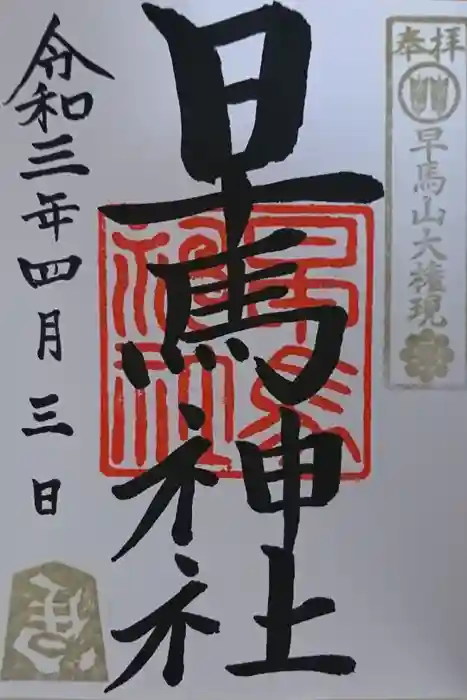 奉拝
早馬山大権現
早馬神社
早馬神社
令和三年四月三日